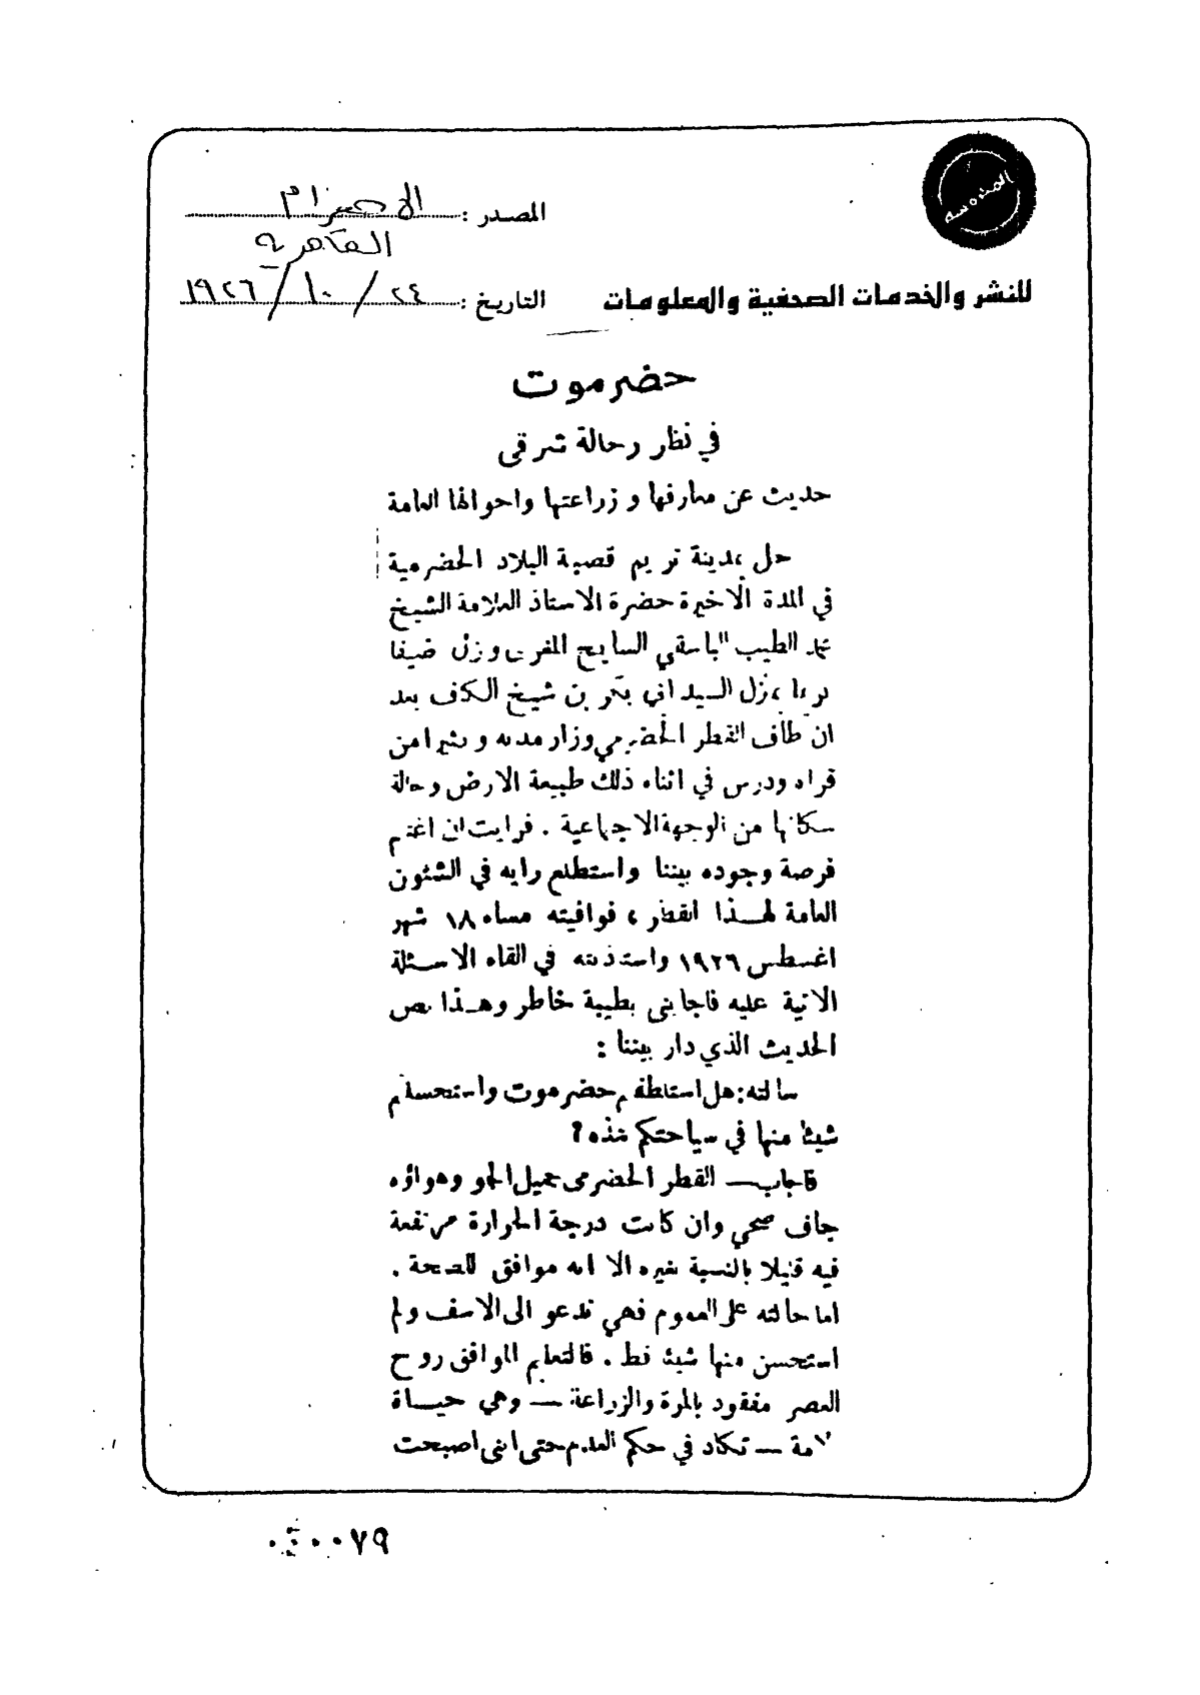 المصدر : الاهرام
القاهرة
للنشر والخدمات الصحفية والمعلومات
التاريخ : ٢٤ / ١٠ / ١٩٢٦
حضرموت
في نظر رحالة شرقى
حديث عن معارفها وزراعتها واحوالها العامة
حل بمدينة تريم قصبة البلاد الحضرمية
في المدة الاخيرة حضرة الاستاذ العلامة الشيخ
محمد الطيب الساسي السايح المغربى ونزل ضيفا
بمنزل السيد ابي بكر بن شيخ الكاف بعد
ان طاف القطر الحضرمي وزار مدنه وكثيرا من
قراه ودرس في اثناء ذلك طبيعة الارض وحالة
سكانها من الوجهة الاجتماعية . فرايت ان اغتنم
فرصة وجوده بيننا واستطلع رايه في الشئون
العامة لهذا القطر ، فوافيته مساء ١٨ شهر
اغسطس ١٩٢٦ واستذنته في القاء الاسئلة
الاتية عليه فاجابنى بطيبة خاطر وهذا نص
الحديث الذي دار بيننا :
سالته : هل استلطفتم حضرموت واستحسنتم
شيئا منها في سياحتكم هذه ؟
فاجاب — القطر الحضرمى جميل الجو وهواؤه
جاف صحي وان كانت درجة الحرارة مرتفعة
فيه قليلا بالنسبة لغيره الا انه موافق للصحة .
اما حالته على العموم فهي تدعو الى الاسف ولم
استحسن منها شيئا قط . فالتعليم الموافق روح
العصر مفقود بالمرة والزراعة — وهي حياة
الامة — تكاد في حكم العدم حتى اننى اصبحت
٧٩